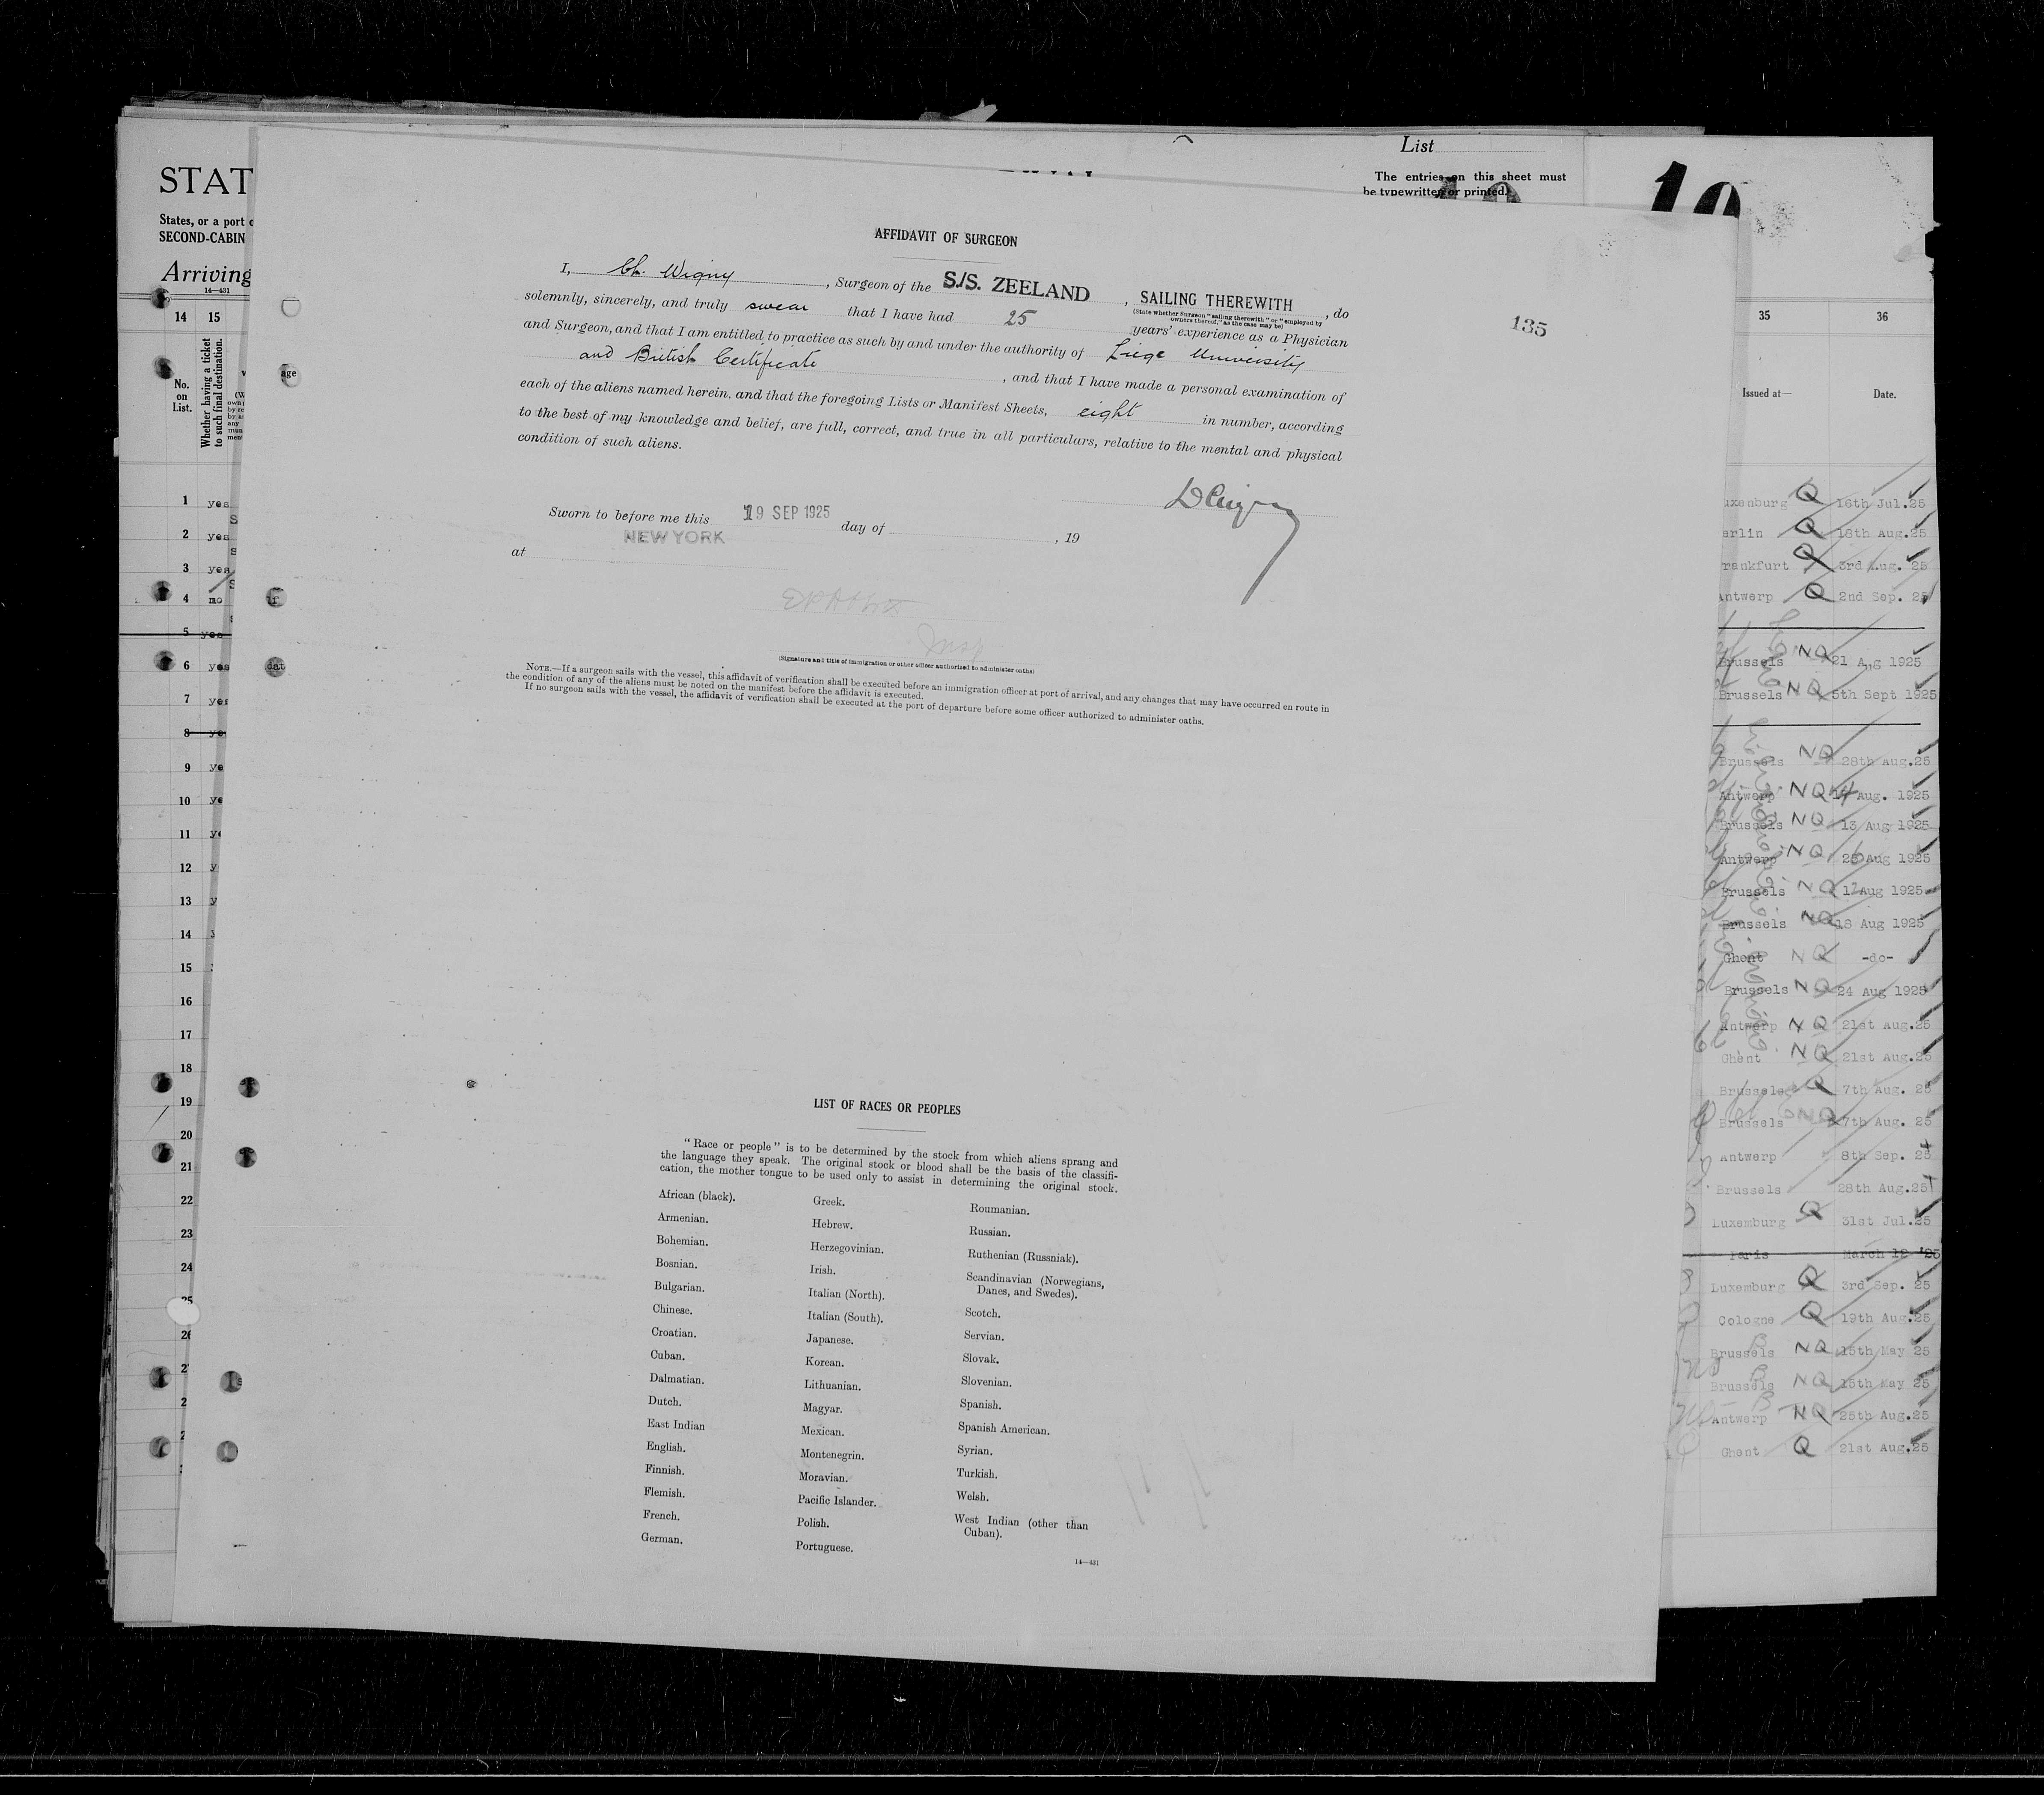 STAT
States, or a port o
SECOND-CABIN
Arriving
14—431
14 15
No. on List.
Whether having a ticket to such final destination.
List
The entries on this sheet must
be typewritten or printed.
10
135
AFFIDAVIT OF SURGEON
I, Ch. Wigny, Surgeon of the S./S. ZEELAND, SAILING THEREWITH, do
(State whether Surgeon "sailing therewith" or "employed by
owners thereof," as the case may be)
solemnly, sincerely, and truly swear that I have had 25 years' experience as a Physician
and Surgeon, and that I am entitled to practice as such by and under the authority of Liege University
and British Certificate, and that I have made a personal examination of
each of the aliens named herein, and that the foregoing Lists or Manifest Sheets, eight in number, according
to the best of my knowledge and belief, are full, correct, and true in all particulars, relative to the mental and physical
condition of such aliens.
Sworn to before me this 19 SEP 1925 day of , 19
at NEW YORK
Insp
(Signature and title of immigration or other officer authorized to administer oaths)
NOTE.—If a surgeon sails with the vessel, this affidavit of verification shall be executed before an immigration officer at port of arrival, and any changes that may have occurred en route in
the condition of any of the aliens must be noted on the manifest before the affidavit is executed.
If no surgeon sails with the vessel, the affidavit of verification shall be executed at the port of departure before some officer authorized to administer oaths.
LIST OF RACES OR PEOPLES
"Race or people" is to be determined by the stock from which aliens sprang and
the language they speak. The original stock or blood shall be the basis of the classifi-
cation, the mother tongue to be used only to assist in determining the original stock.
African (black).
Armenian.
Bohemian.
Bosnian.
Bulgarian.
Chinese.
Croatian.
Cuban.
Dalmatian.
Dutch.
East Indian
English.
Finnish.
Flemish.
French.
German.
Greek.
Hebrew.
Herzegovinian.
Irish.
Italian (North).
Italian (South).
Japanese.
Korean.
Lithuanian.
Magyar.
Mexican.
Montenegrin.
Moravian.
Pacific Islander.
Polish.
Portuguese.
Roumanian.
Russian.
Ruthenian (Russniak).
Scandinavian (Norwegians,
Danes, and Swedes).
Scotch.
Servian.
Slovak.
Slovenian.
Spanish.
Spanish American.
Syrian.
Turkish.
Welsh.
West Indian (other than
Cuban).
14—431
1 yes
2 yes
3 yes
4 no
5 yes
6 yes
7 yes
8 ye
9 ye
10 ye
11 ye
12 y
13 y
14
15
16
17
18
19
20
21
22
23
24
25
26
35 36
Issued at— Date.
uxenburg Q 16th Jul.25
erlin Q 18th Aug.25
rankfurt Q 3rd Aug. 25
Antwerp Q 2nd Sep. 25
Brussels NQ 21 Aug 1925
Brussels NQ 5th Sept 1925
Brussels NQ 28th Aug.25
Antwerp NQ 14 Aug. 1925
Brussels NQ 13 Aug 1925
Antwerp NQ Aug 1925
Brussels NQ 17Aug 1925
Brussels NQ 18 Aug 1925
Ghent NQ -do-
Brussels NQ 24 Aug 1925
Antwerp NQ 21st Aug.25
Ghent NQ 21st Aug.25
Brussels Q 7th Aug. 25
Brussels NQ 7th Aug. 25
Antwerp 8th Sep. 25
Brussels 28th Aug.25
Luxemburg Q 31st Jul.25
Paris March 12 '25
Luxemburg Q 3rd Sep. 25
Cologne Q 19th Aug.25
Brussels NQ 15th May 25
Brussels NQ 15th May 25
Antwerp NQ 25th Aug.25
Ghent Q 21st Aug.25